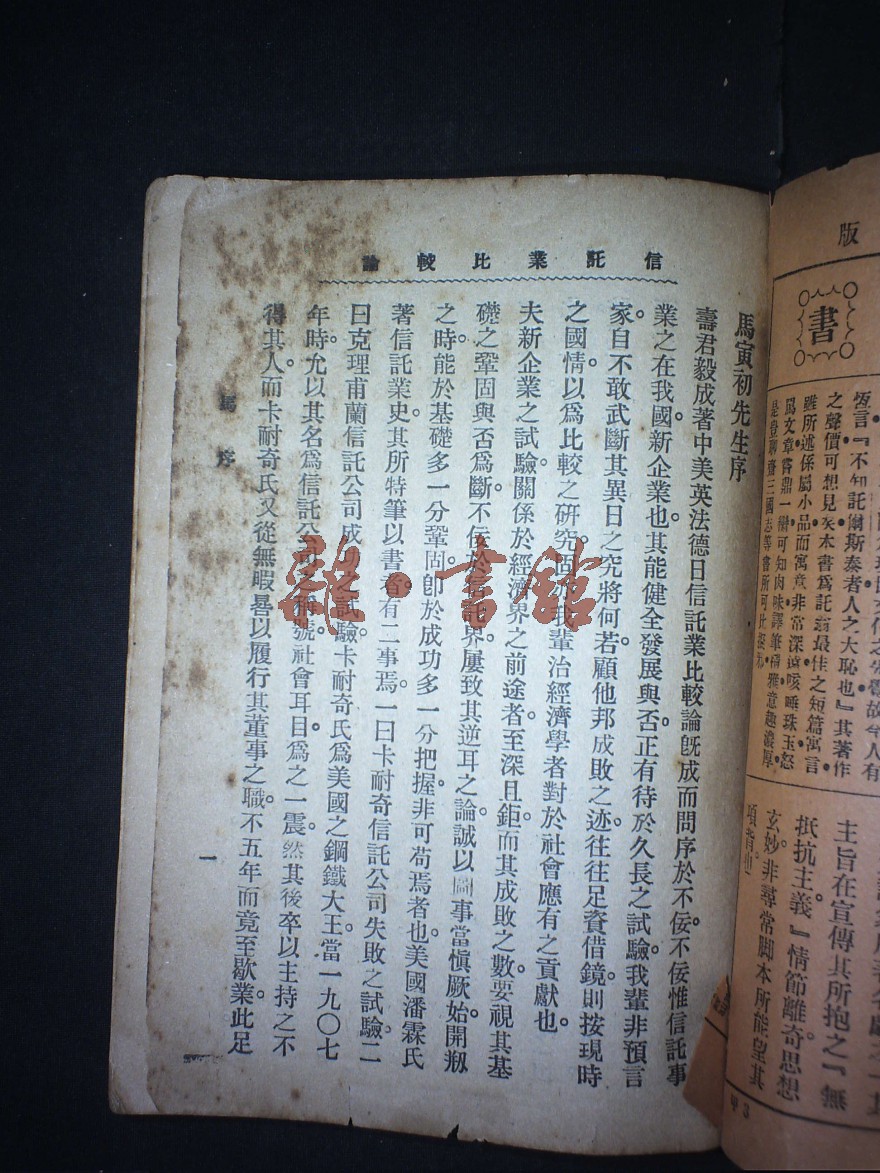 信託業比較論
馬寅初先生序
壽君毅成著中美英法德日信託業比較論旣成而問序於不佞。不佞惟信託事
業之在我國。新企業也。其能健全發展與否。正有待於久長之試驗。我輩非預言
家。自不敢武斷其異日之究將何若。顧他邦成敗之迹。往往足資借鏡。則按現時
之國情。以爲比較之研究。固我輩治經濟學者對於社會應有之貢獻也。
夫新企業之試驗。關係於經濟界之前途者。至深且鉅。而其成敗之數。要視其基
礎之鞏固與否爲斷。不佞於信託界。屢致其逆耳之論。誠以圖事當愼厥始。開剏
之時。能於基礎多一分鞏固。卽於成功多一分把握。非可苟焉者也。美國潘霖氏
著信託業史。其所特筆以書者。有二事焉。一曰卡耐奇信託公司失敗之試驗。二
曰克理甫蘭信託公司成功之試驗。卡耐奇氏爲美國之鋼鐵大王。當一九〇七
年時。允以其名爲信託公司之稱號。社會耳目。爲之一震。然其後卒以主持之不
得其人。而卡耐奇氏又從無暇晷以履行其董事之職。不五年而竟至歇業。此足
馬序
一
雜·書館
版
書
恆言『不知託爾斯泰者人之大恥也』其著作
之聲價可想見矣本書爲託翁最佳之短篇寓言
雖所述係屬小品而寓意非常深遠咳唾珠玉怒
罵文章嘗鼎一臠可知肉味譯筆穩雅意趣濃厚
是豈聊齋三國志等書所可比擬
主旨在宣傳其所抱之『無
抵抗主義』情節離奇思想
玄妙非尋常脚本所能望其
項背也
甲3